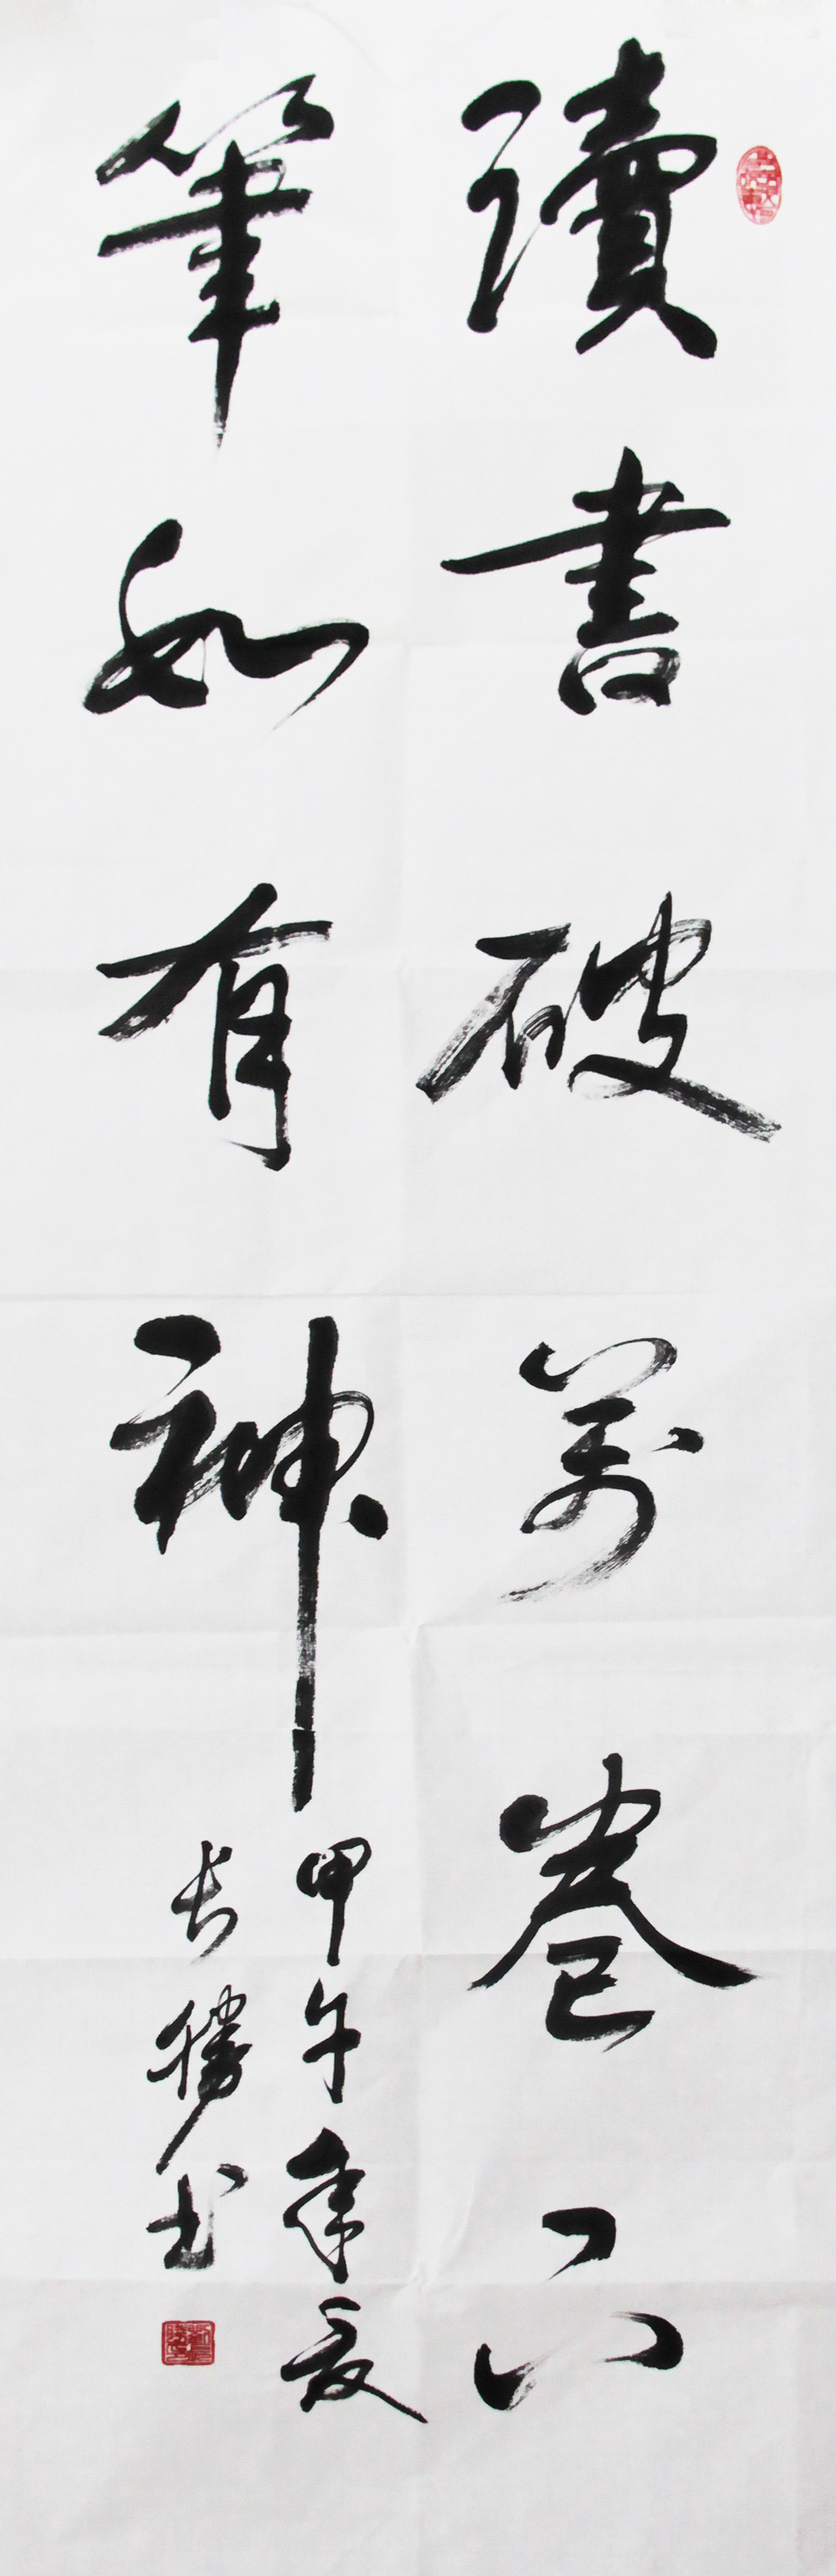 讀書破萬卷下
筆如有神
甲午年夏
长勝书